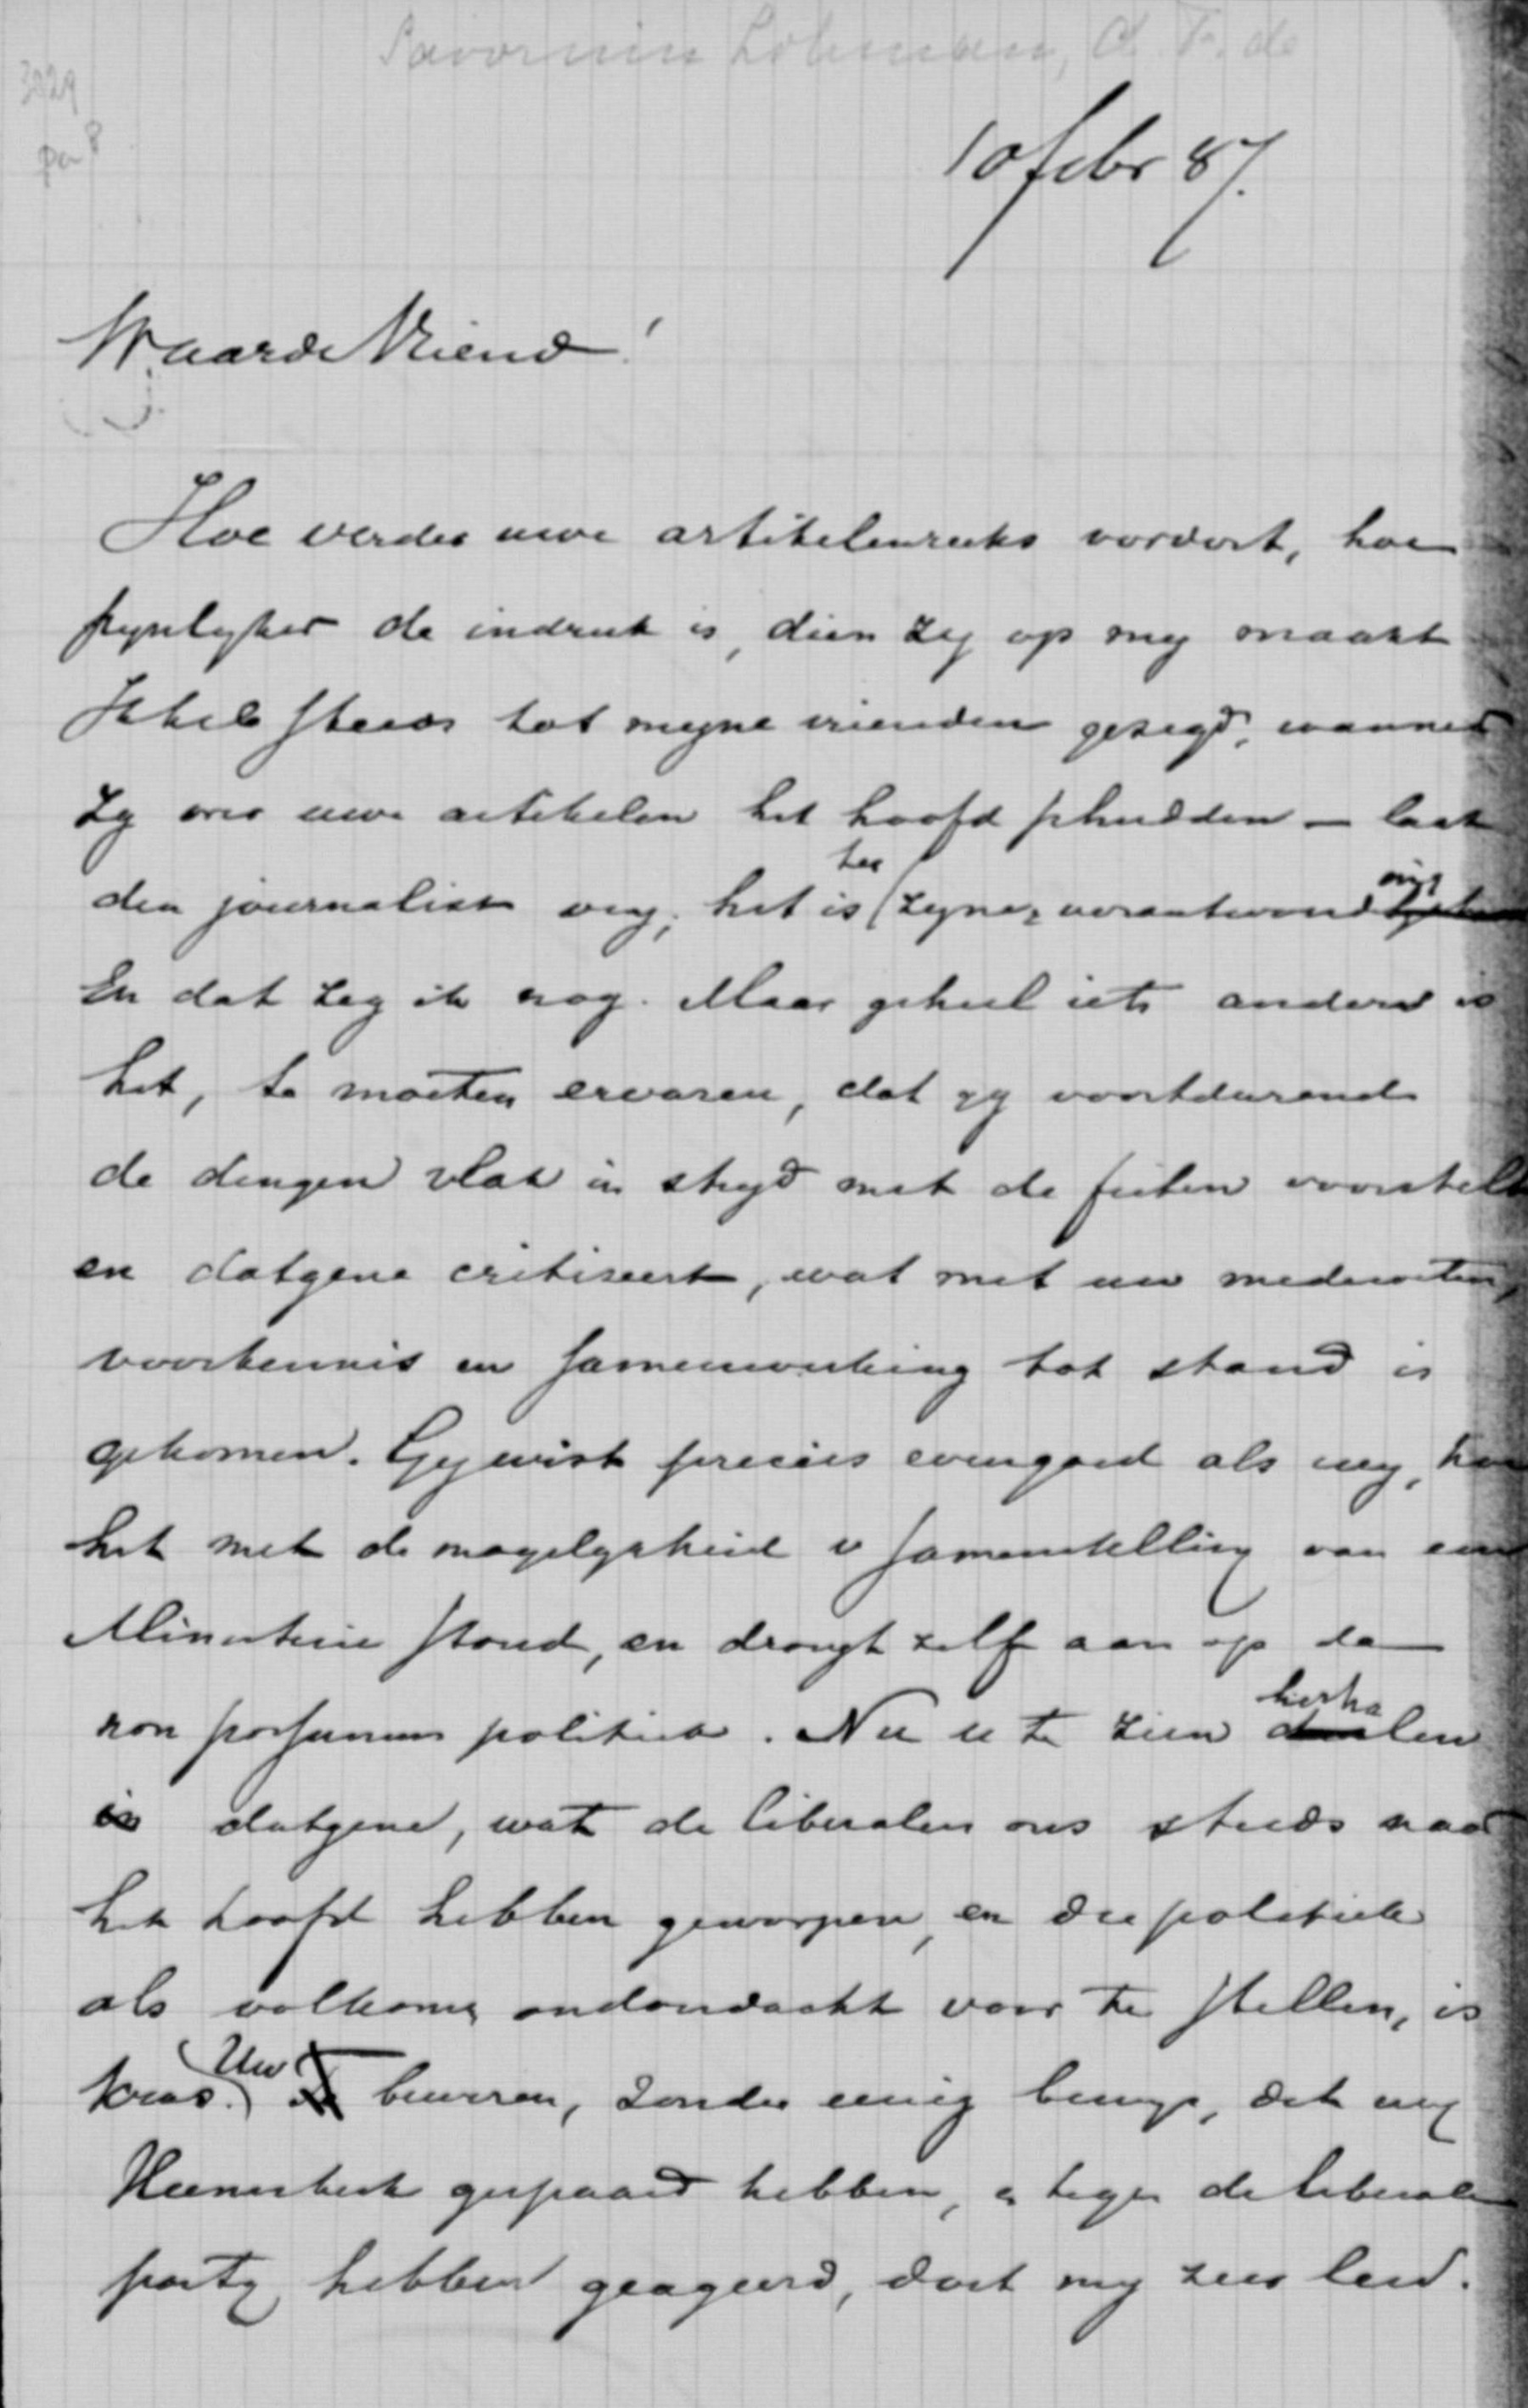 Savornin Lohman, A. F. de
3029
pa 8
10 febr 87.
Waarde Vriend!
Hoe verder uwe artikelenreeks vordert, hoe
pynlyker de indruk is, dien zy op my maakt
Ik heb steeds tot myne vrienden gezegd, wanneer
zy over uwe artikelen het hoofd schudden – laat
den journalist vry; het is ter zyner verantwoording
En dat zeg ik nog. Maar geheel iets anders is
het, te moeten ervaren, dat gy voortdurend
de dingen vlak in stryd met de feiten voorstelt
en datgene critiseert, wat met uw medeweten,
voorkennis en samenwerking tot stand is
gekomen. Gy wist precies evengoed als wy, hoe
het met de mogelykheid v samenstelling van een
Ministerie stond, en drongt zelf aan op de
non possumus politiek. Nu u te zien herhalen
datgene, wat de liberalen ons steeds naar
het hoofd hebben geworpen, en die politiek
als volkomen ondoordacht voor te stellen, is
kras. Uw beweren, zonder eenig bewys, dat wy
Heemskerk gespaard hebben, en tegen de liberale
party hebben geageerd, doet my zeer leed.